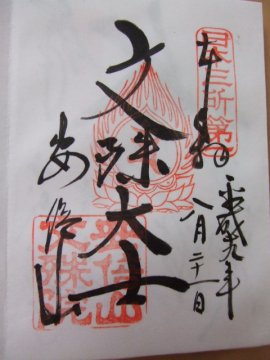 日本三所第一
奉拝
平成九年
八月二十一日
文殊大士
安倍山
安倍山
文殊院